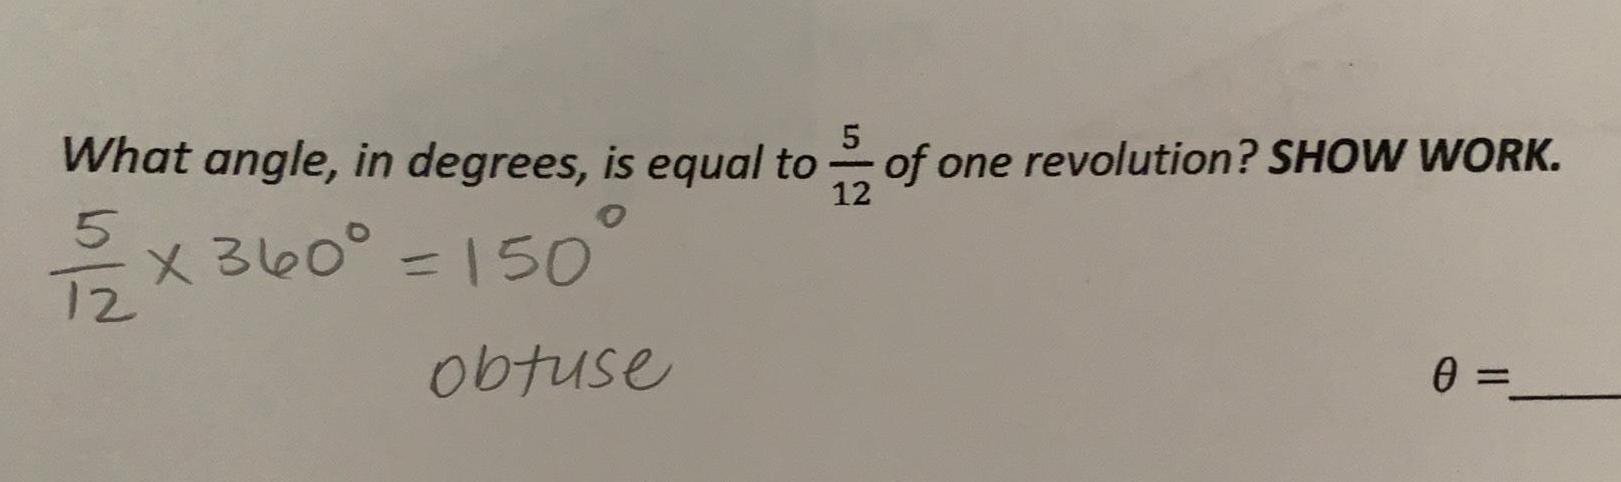 What angle, in degrees, is equal to 5/12 of one revolution? SHOW WORK.
5/12 x 360° = 150°
obtuse
θ =____